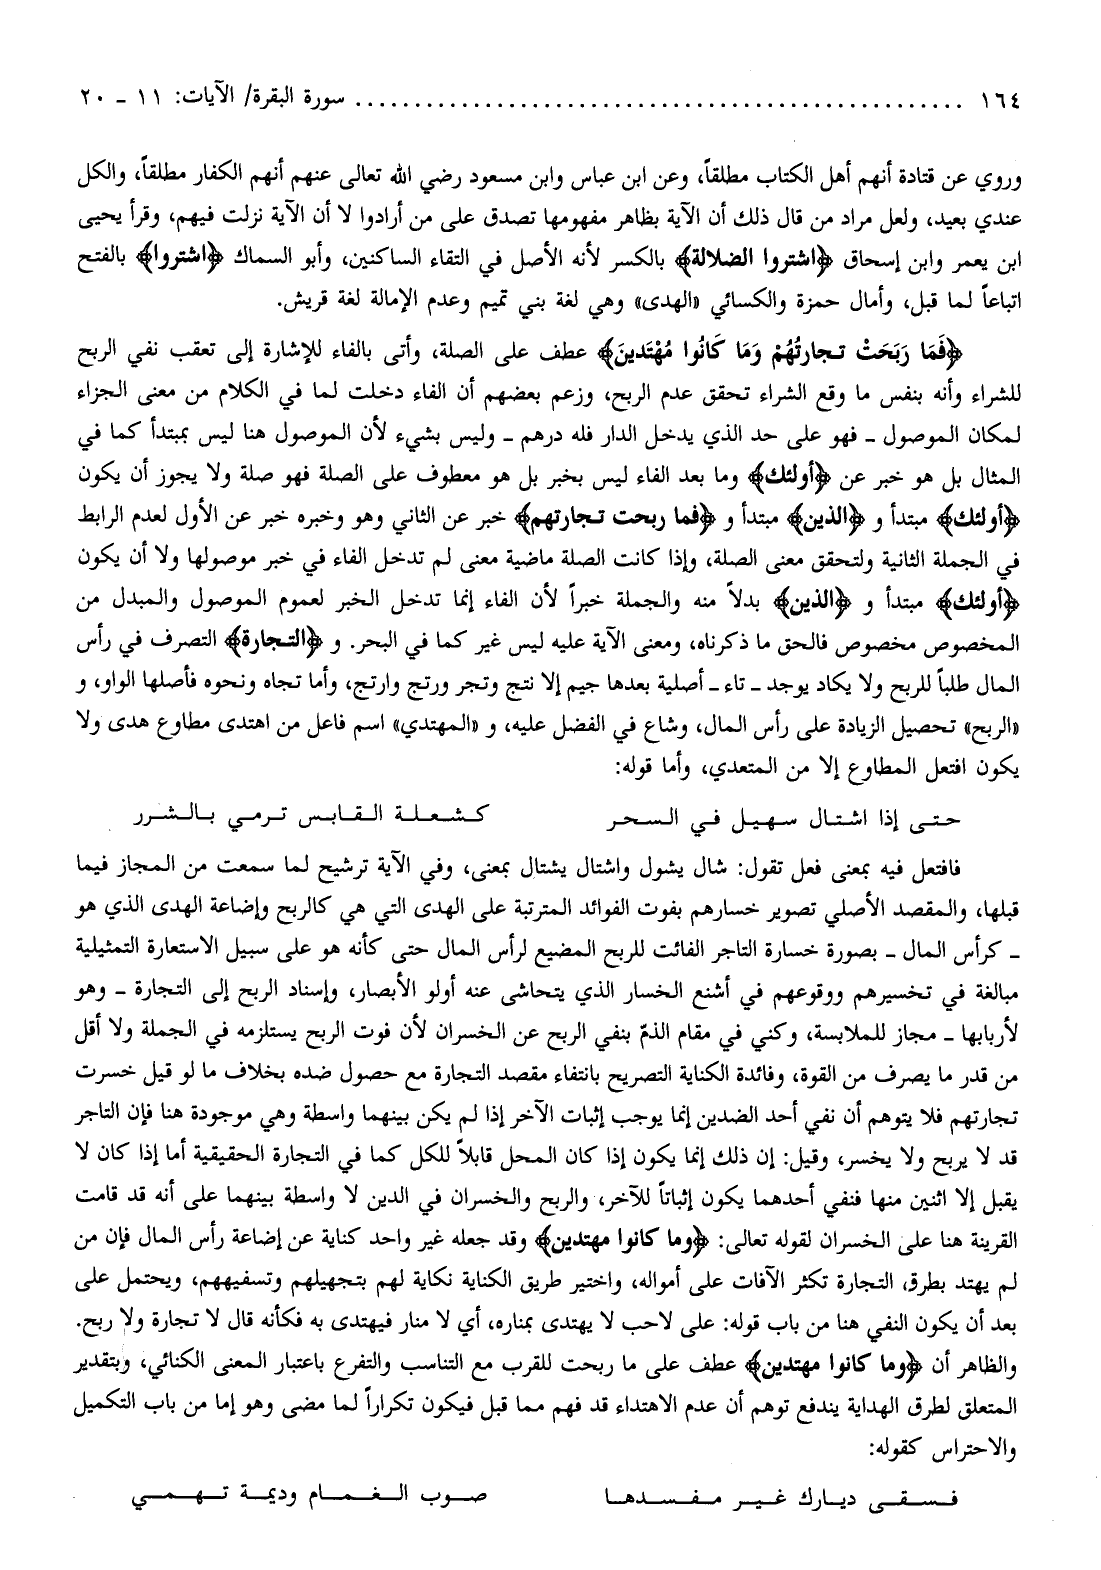 ١٦٤ .................................................... سورة البقرة/ الآيات: ١١ ـ ٢٠
وروي عن قتادة أنهم أهل الكتاب مطلقاً، وعن ابن عباس وابن مسعود رضي الله تعالى عنهم أنهم الكفار مطلقاً، والكل
عندي بعيد، ولعل مراد من قال ذلك أن الآية بظاهر مفهومها تصدق على من أرادوا لا أن الآية نزلت فيهم، وقرأ يحيى
ابن يعمر وابن إسحاق ﴿اشتروا الضلالة﴾ بالكسر لأنه الأصل في التقاء الساكنين، وأبو السماك ﴿اشتروا﴾ بالفتح
اتباعاً لما قبل، وأمال حمزة والكسائي «الهدى» وهي لغة بني تميم وعدم الإمالة لغة قريش.
﴿فَمَا رَبَحَتْ تجارتُهُمْ وَمَا كَانُوا مُهْتَدينَ﴾ عطف على الصلة، وأتى بالفاء للإشارة إلى تعقب نفي الربح
للشراء وأنه بنفس ما وقع الشراء تحقق عدم الربح، وزعم بعضهم أن الفاء دخلت لما في الكلام من معنى الجزاء
لمكان الموصول ـ فهو على حد الذي يدخل الدار فله درهم ـ وليس بشيء لأن الموصول هنا ليس بمبتدأ كما في
المثال بل هو خبر عن ﴿أولئك﴾ وما بعد الفاء ليس بخبر بل هو معطوف على الصلة فهو صلة ولا يجوز أن يكون
﴿أولئك﴾ مبتدأ و ﴿الذين﴾ مبتدأ و ﴿فما ربحت تجارتهم﴾ خبر عن الثاني وهو وخبره خبر عن الأول لعدم الرابط
في الجملة الثانية ولتحقق معنى الصلة، وإذا كانت الصلة ماضية معنى لم تدخل الفاء في خبر موصولها ولا أن يكون
﴿أولئك﴾ مبتدأ و ﴿الذين﴾ بدلاً منه والجملة خبراً لأن الفاء إنما تدخل الخبر لعموم الموصول والمبدل من
المخصوص مخصوص فالحق ما ذكرناه، ومعنى الآية عليه ليس غير كما في البحر. و ﴿التجارة﴾ التصرف في رأس
المال طلباً للربح ولا يكاد يوجد ـ تاء ـ أصلية بعدها جيم إلا نتج وتجر ورتج وارتج، وأما تجاه ونحوه فأصلها الواو، و
«الربح» تحصيل الزيادة على رأس المال، وشاع في الفضل عليه، و «المهتدي» اسم فاعل من اهتدى مطاوع هدى ولا
يكون افتعل المطاوع إلا من المتعدي، وأما قوله:
حتى إذا اشتال سهيل في السحر كشعلة القابس ترمي بالشرر
فافتعل فيه بمعنى فعل تقول: شال يشول واشتال يشتال بمعنى، وفي الآية ترشيح لما سمعت من المجاز فيما
قبلها، والمقصد الأصلي تصوير خسارهم بفوت الفوائد المترتبة على الهدى التي هي كالربح وإضاعة الهدى الذي هو
ـ كرأس المال ـ بصورة خسارة التاجر الفائت للربح المضيع لرأس المال حتى كأنه هو على سبيل الاستعارة التمثيلية
مبالغة في تخسيرهم ووقوعهم في أشنع الخسار الذي يتحاشى عنه أولو الأبصار، وإسناد الربح إلى التجارة ـ وهو
لأربابها ـ مجاز للملابسة، وكني في مقام الذمّ بنفي الربح عن الخسران لأن فوت الربح يستلزمه في الجملة ولا أقل
من قدر ما يصرف من القوة، وفائدة الكناية التصريح بانتفاء مقصد التجارة مع حصول ضده بخلاف ما لو قيل خسرت
تجارتهم فلا يتوهم أن نفي أحد الضدين إنما يوجب إثبات الآخر إذا لم يكن بينهما واسطة وهي موجودة هنا فإن التاجر
قد لا يربح ولا يخسر، وقيل: إن ذلك إنما يكون إذا كان المحل قابلاً للكل كما في التجارة الحقيقية أما إذا كان لا
يقبل إلا اثنين منها فنفي أحدهما يكون إثباتاً للآخر، والربح والخسران في الدين لا واسطة بينهما على أنه قد قامت
القرينة هنا على الخسران لقوله تعالى: ﴿وما كانوا مهتدين﴾ وقد جعله غير واحد كناية عن إضاعة رأس المال فإن من
لم يهتد بطرق التجارة تكثر الآفات على أمواله، واختير طريق الكناية نكاية لهم بتجهيلهم وتسفيههم، ويحتمل على
بعد أن يكون النفي هنا من باب قوله: على لاحب لا يهتدى بمناره، أي لا منار فيهتدى به فكأنه قال لا تجارة ولا ربح.
والظاهر أن ﴿وما كانوا مهتدين﴾ عطف على ما ربحت للقرب مع التناسب والتفرع باعتبار المعنى الكنائي، وبتقدير
المتعلق لطرق الهداية يندفع توهم أن عدم الاهتداء قد فهم مما قبل فيكون تكراراً لما مضى وهو إما من باب التكميل
والاحتراس كقوله:
فسقى ديارك غير مفسدها صوب الغمام وديمة تهمي